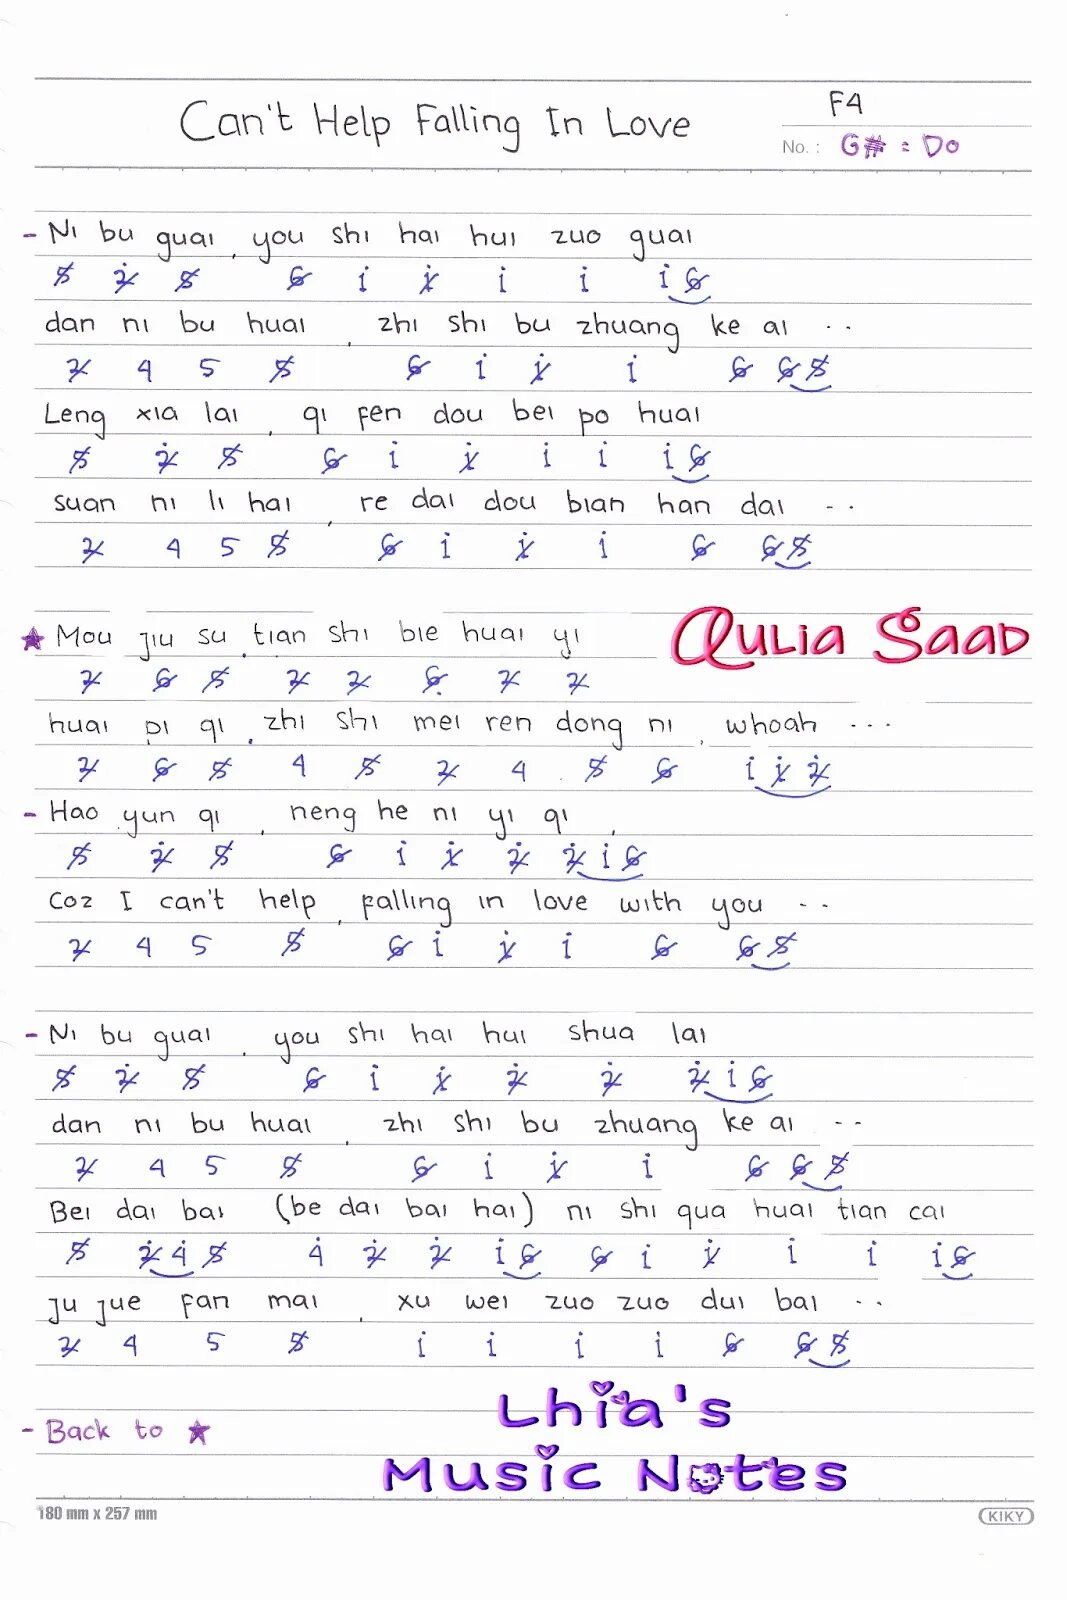 Can't Help Falling In Love
F4
No. : G# = Do
- Ni bu guai, you shi hai hui zuo guai
5 2̇ 5 6 1̇ 1̇ 1̇ 1̇ 1̇ 6
dan ni bu huai, zhi shi bu zhuang ke ai ..
2 4 5 5 6 1̇ 1̇ 1̇ 6 6 5
Leng xia lai, qi fen dou bei po huai
5 2̇ 5 6 1̇ 1̇ 1̇ 1̇ 1̇ 6
suan ni li hai, re dai dou bian han dai ...
2 4 5 5 6 1̇ 1̇ 1̇ 6 6 5
★ Mou jiu su, tian shi bie huai yi
2 6 5 2 2 6̣ 2 2
Qulia Saad
huai pi qi, zhi shi mei ren dong ni, whoah ...
2 6 5 4 5 2 4 5 6 1̇ 1̇ 2̇
- Hao yun qi, neng he ni yi qi,
5 2̇ 5 6 1̇ 1̇ 2̇ 2̇ 1̇ 6
Coz I can't help, falling in love with you ...
2 4 5 5 6 1̇ 1̇ 1̇ 6 6 5
- Ni bu guai, you shi hai hui shua lai
5 2̇ 5 6 1̇ 1̇ 2̇ 2̇ 2̇ 1̇ 6
dan ni bu huai, zhi shi bu zhuang ke ai --
2 4 5 5 6 1̇ 1̇ 1̇ 6 6 5
Bei dai bai (be dai bai hai) ni shi qua huai tian cai
5 2̇ 4̇ 5 4̇ 2̇ 2̇ 1̇ 6 6 1̇ 1̇ 1̇ 1̇ 1̇ 6
ju jue fan mai, xu wei zuo zuo dui bai ..
2 4 5 5 1̇ 1̇ 1̇ 1̇ 6 6 5
- Back to ★
Lhia's
Music Notes
180 mm x 257 mm
KIKY